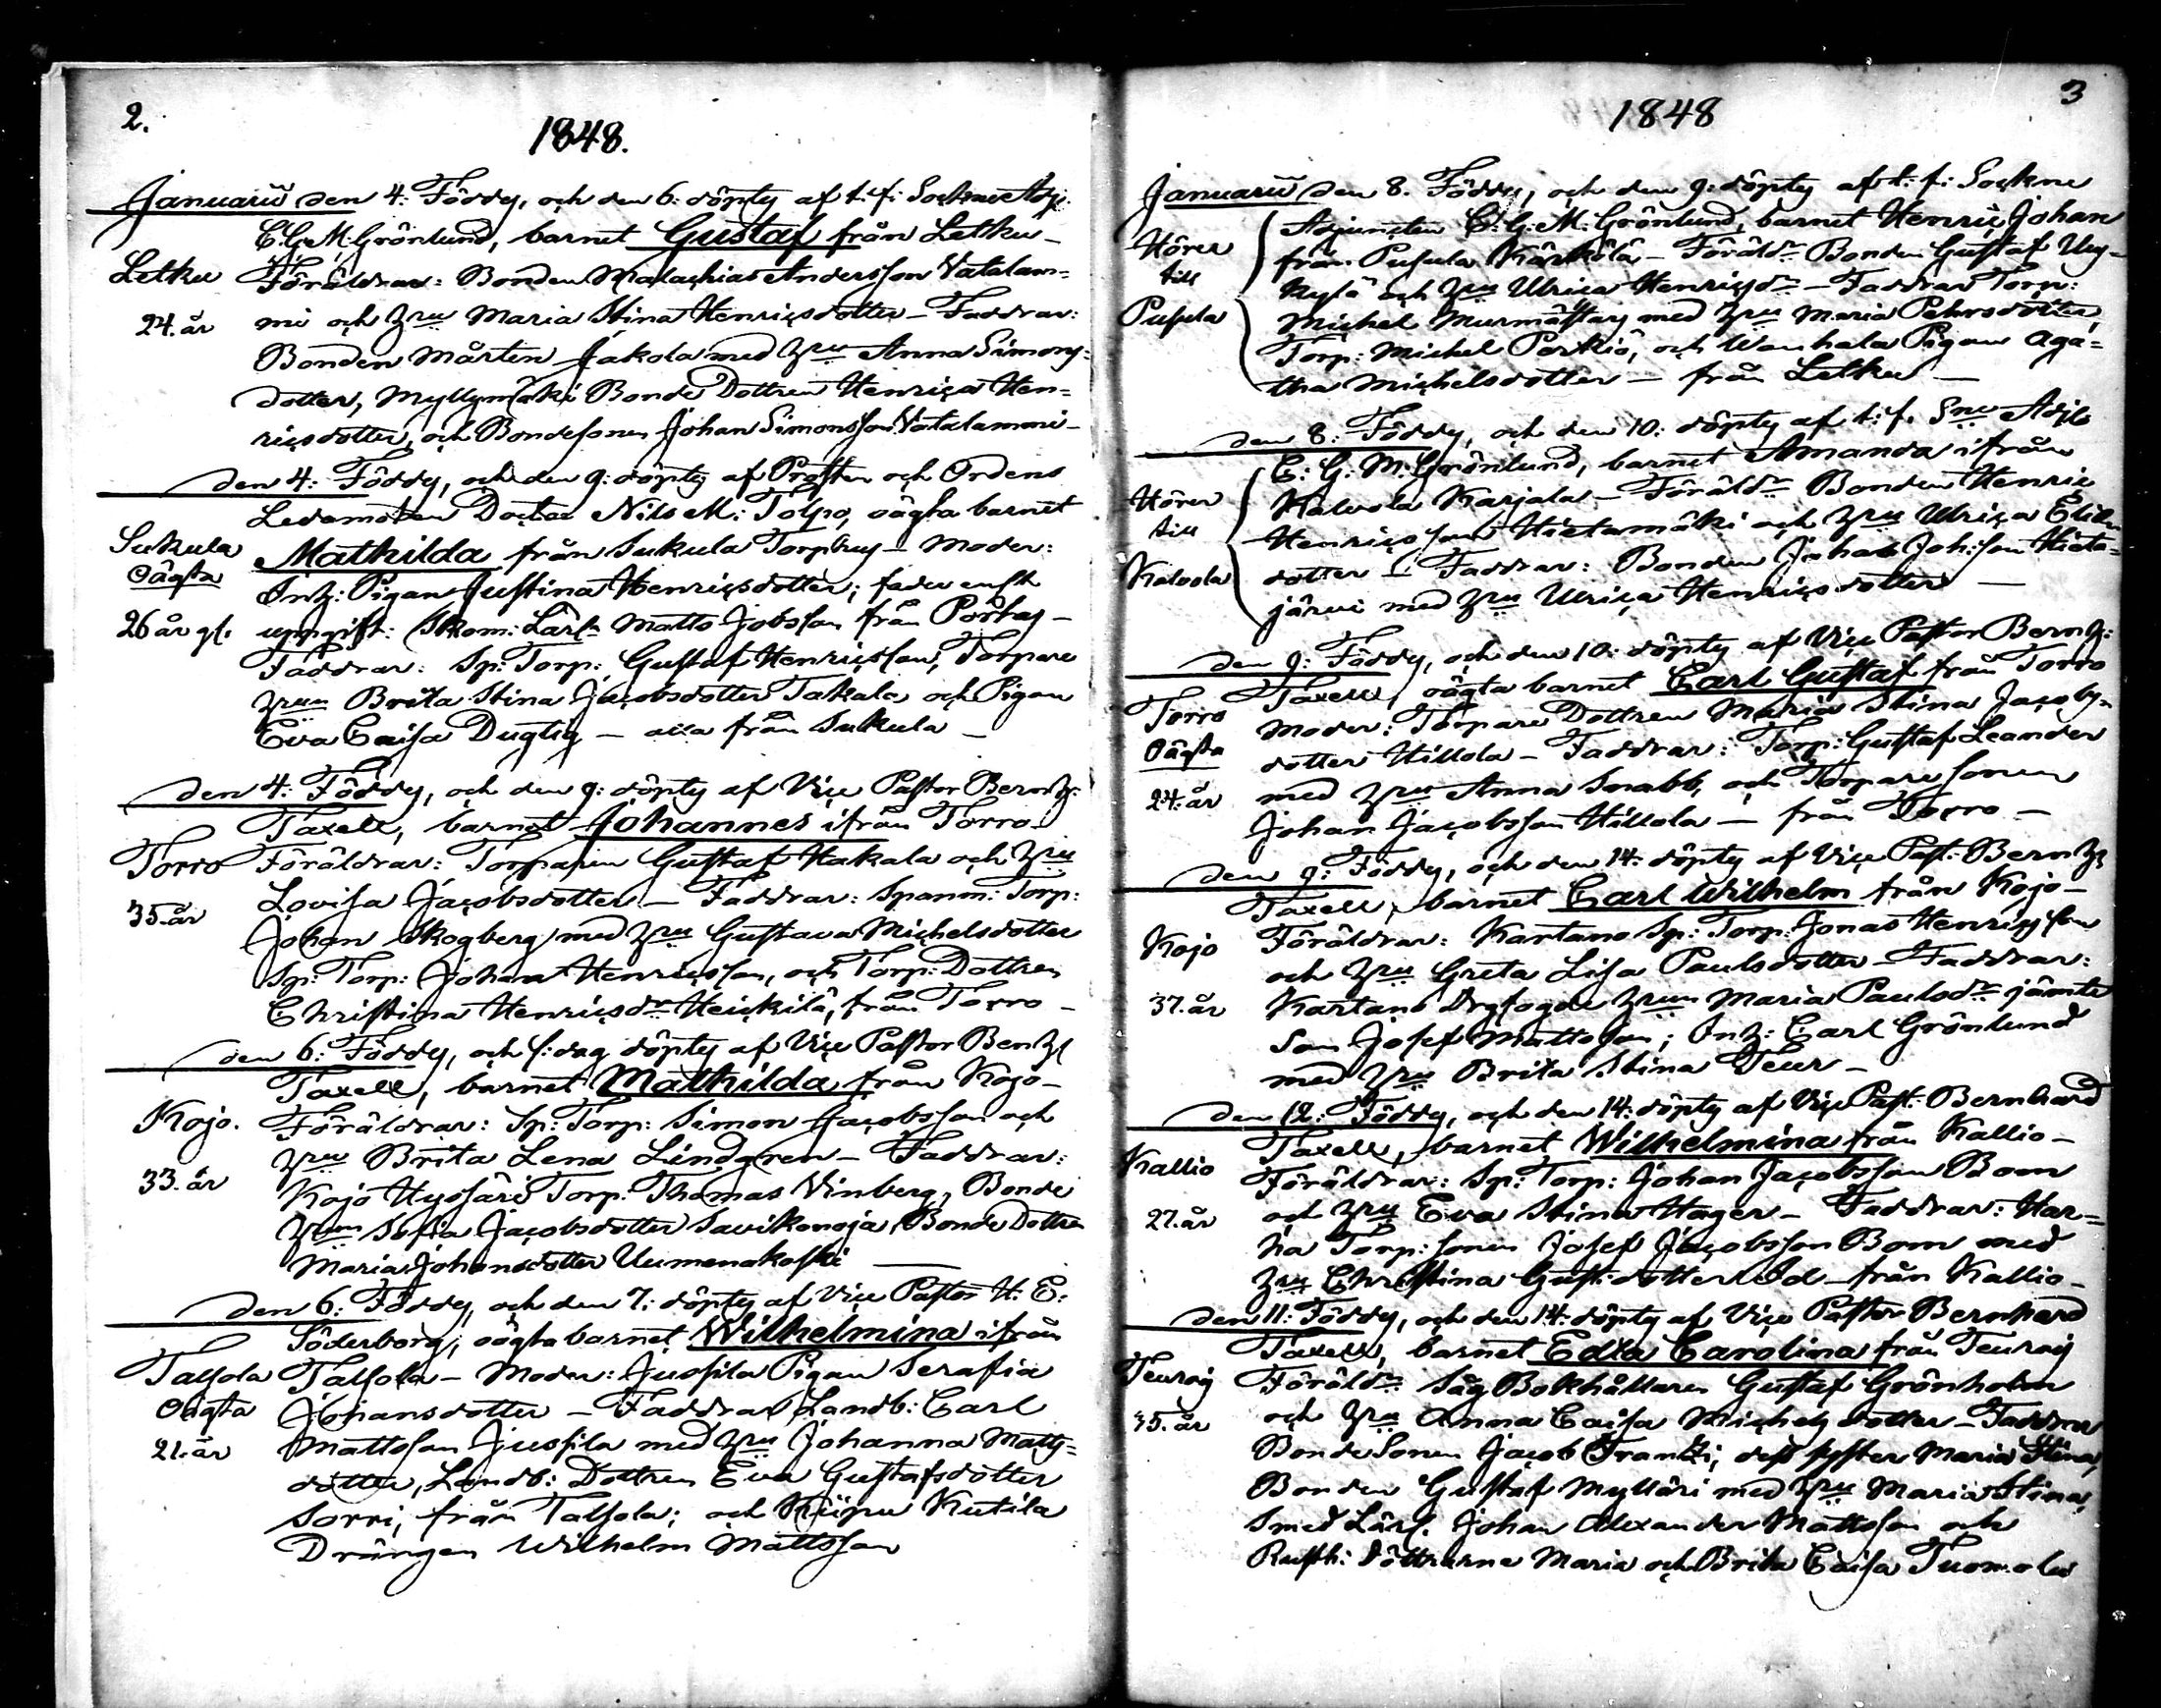 2.
1848.
Januarii den 4: Föddes, och den 6: döptes af t. f: Sockne Adj:
C. G. M: Grönlund, barnet Gustaf från Letku –
Letku Föräldrar: Bonden Malachias Andersson Vatalam=
24. år mi och Hru Maria Stina Henricsdotter – Faddrar:
Bonden Mårten Jakola med Hru Anna Simons=
dotter, Myllymäki Bonde Dottren Henrica Hen=
ricsdotter, och Bondesonen Johan Simonsson Vatalammi –
den 4: Föddes, och den 9: döptes af Prosten och Ordens
Ledamoten Doctor Nils M: Tolpo, oägta barnet
Sukula Mathilda från Sukula Torphus – Moder:
Oägta Inh: Pigan Justina Henricsdotter; fader enligt
26 år gl. uppgift: Skom: Lärl: Matts Jobsson från Portas –
Faddrar: Sp: Torp: Gustaf Henricsson, Torpare
Hrun Brita Stina Jacobsdotter Takala och Pigan
Eva Caisa Dugtig – alla från Sukula –
den 4: Föddes, och den 9: döptes af Vice Pastor Bernh:
Taxell, barnet Johannes ifrån Torro –
Torro Föräldrar: Torparen Gustaf Hakala och Hru
35. år Lovisa Jacobsdotter – Faddrar: Spanm: Torp:
Johan Skogberg med Hru Gustava Michelsdotter
Sp: Torp: Johan Henricsson, och Torp: Dottren
Christina Henricsdr Heickilä, från Torro –
den 6: Föddes, och s: dag döptes af Vice Pastor Benh:
Taxell, barnet Mathilda från Kojo –
Kojo. Föräldrar: Sp: Torp: Simon Jacobsson och
Hru Brita Lena Lindgren – Faddrar:
33. år Kojo Hyssäri Torp: Thomas Vinberg, Bonde
Hrun Sofia Jacobsdotter Savikonoja, Bonde Dottren
Maria Johansdotter Uumenakoski
den 6: Föddes, och den 7: döptes af Vice Pastor H: E:
Söderborg, oägta barnet Wilhelmina ifrån
Talsola Talsola – Moder: Jussila Pigan Serafia
Oägta Johansdotter – Faddrar Landb: Carl
21. år Mattsson Jussila med Hru Johanna Matts=
dotter, Landb: Dottren Eva Gustafsdotter
Sorri, från Talsola; och Kiipu Kutila
Drängen Wilhelm Mattsson
3
1848
Januarii den 8. Föddes, och den 9: döptes af t: f: Sockne
Adjuncten C: G: M: Grönlund, barnet Henric Johan
Hörer till Pusula från Pusula Kärkölä – Föräldr: Bonden Gustaf Uus=
kylä och Hru Ulrica Henricsdr – Faddrar Torp:
Michel Murmästars med Hru Maria Pehrsdotter,
Torp: Michel Perkiö, och Wanhala Pigan Aga=
tha Michelsdotter – från Letku –
den 8: Föddes, och den 10: döptes af t: f. Sne Adj:
C: G: M: Grönlund, barnet Amanda ifrån
Hörer till Kalvola Kalvola Karjala – Föräldr: Bonden Henric
Henricsson Hietamäki och Hru Ulrica
dotter – Faddrar: Bonden Johan Joh:son Hieta=
järvi med Hru Ulrica Henricsdotter –
den 9: Föddes, och den 10: döptes af Vice Pastor Bernh:
Taxell, oägta barnet Carl Gustaf från Torro
Torro Moder: Torpare Dottren Maria Stina Jacobs=
Oägta dotter Hillola – Faddrar: Torp: Gustaf Leander
24. år med Hru Anna Snabb, och Torpare Sonen
Johan Jacobsson Hillola – från Torro –
den 9: Föddes, och den 14: döptes af Vice Past: Bernh:
Taxell, barnet Carl Wilhelm från Kojo –
Kojo Föräldrar: Kartano Sp: Torp: Jonas Henricsson
och Hru Greta Lisa Paulsdotter – Faddrar:
37. år Kartano Drgfogde Hrun Maria Paulsdr jämte
Son Josef Mattsson; Inh: Carl Grönlund
med Hru Brita Stina Teur –
den 12: Föddes, och den 14: döptes af Vice Past: Bernhard
Taxell, barnet Wilhelmina från Kallio –
Kallio Föräldrar: Sp: Torp: Johan Jacobsson Bom
27. år och Hru Eva Stina Hager – Faddrar: Har=
ha Torp: Sonen Josef Jacobsson Bom med
Hru Christina Gust:dotter Ed – från Kallio –
den 11: Föddes, och den 14: döptes af Vice Pastor Bernhard
Taxell, barnet Edla Carolina från Teurois
Teurois Föräldr: Såg Bokhållaren Gustaf Grönholm
35. år och Hru Anna Caisa Michelsdotter – Faddrar
Bonde Sonen Jacob Frantzi, dess syster Maria Stina,
Bonden Gustaf Mylläri med Hru Maria Stina,
Smed Lärl. Johan Alexander Mattsson och
Rusth: döttrarne Maria och Brita Caisa Tuomola